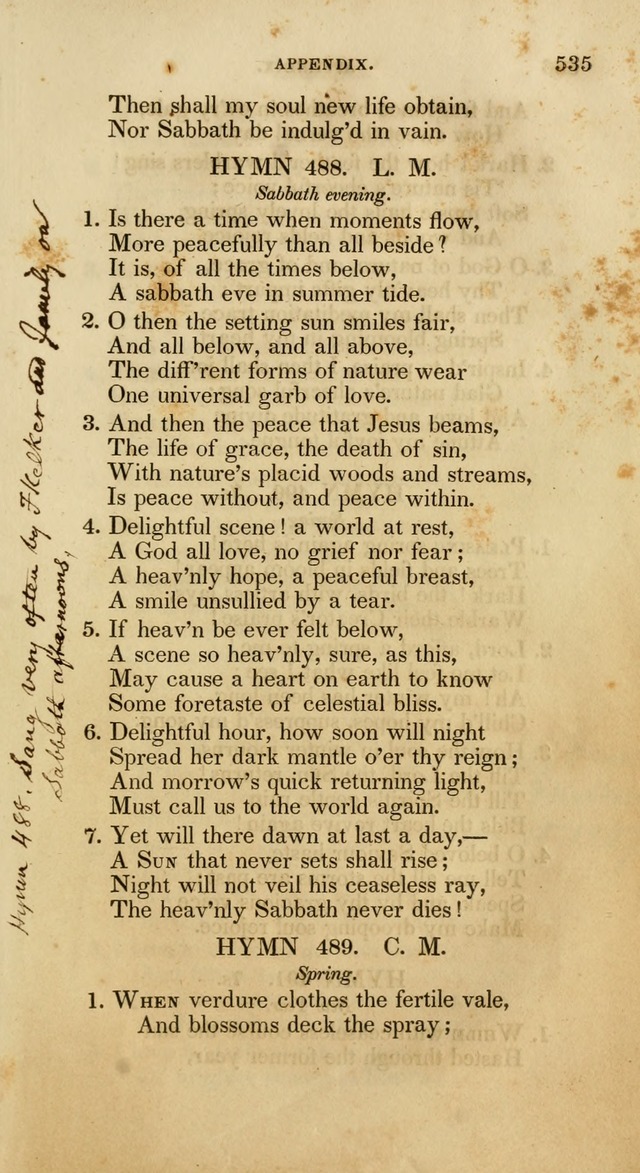 APPENDIX. 535
Then shall my soul new life obtain,
Nor Sabbath be indulg'd in vain.
HYMN 488. L. M.
Sabbath evening.
1. Is there a time when moments flow,
More peacefully than all beside?
It is, of all the times below,
A sabbath eve in summer tide.
2. O then the setting sun smiles fair,
And all below, and all above,
The diff'rent forms of nature wear
One universal garb of love.
3. And then the peace that Jesus beams,
The life of grace, the death of sin,
With nature's placid woods and streams,
Is peace without, and peace within.
4. Delightful scene! a world at rest,
A God all love, no grief nor fear;
A heav'nly hope, a peaceful breast,
A smile unsullied by a tear.
5. If heav'n be ever felt below,
A scene so heav'nly, sure, as this,
May cause a heart on earth to know
Some foretaste of celestial bliss.
6. Delightful hour, how soon will night
Spread her dark mantle o'er thy reign;
And morrow's quick returning light,
Must call us to the world again.
7. Yet will there dawn at last a day,—
A SUN that never sets shall rise;
Night will not veil his ceaseless ray,
The heav'nly Sabbath never dies!
HYMN 489. C. M.
Spring.
1. WHEN verdure clothes the fertile vale,
And blossoms deck the spray;
Hymn 488. Sang very often by and family on
Sabbath afternoons,